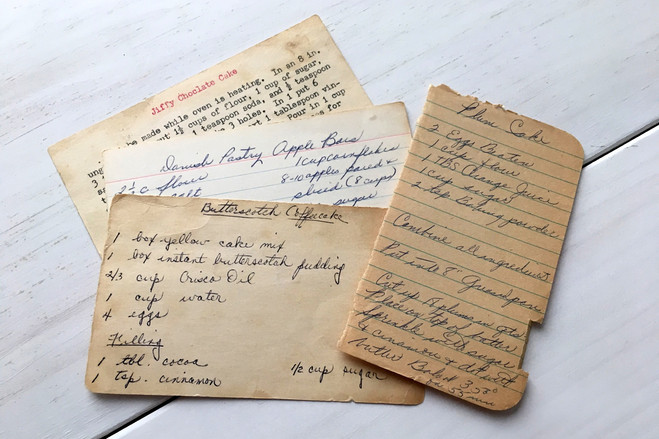 Jiffy Choclate Cake
be made while oven is heating. In an 8 in.
ung
1½ cups of flour, 1 cup of sugar,
3
1 teaspoon soda, and ½ teaspoon
3 holes. In 1 put 6
1 tablespoon vin-
Pour in 1 cup
for
Danish Pastry Apple Bars
2½ c flour
1 cup cornflakes
8-10 apples pared &
sliced (8 cups)
sugar
Butterscotch Coffeecake
1 box yellow cake mix
1 box instant butterscotch pudding
2/3 cup Crisco Oil
1 cup water
4 eggs
Filling
1 tbl. cocoa
1 tsp. cinnamon
1/2 cup sugar
Plum Cake
2 Eggs Beaten
1 cup flour
1 TBS Orange Juice
1 cup sugar
2 tsp Baking powder
Combine all ingredients
Put into 8"
Cut up
plums in
Place on top of batter
Sprinkle with sugar
& cinnamon & dot with
butter Bake 350°
55 min